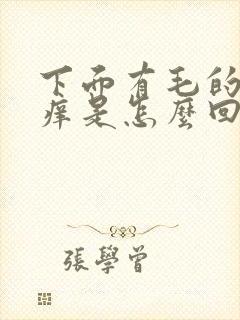 下面有毛的
痒是怎麼回
張學曾